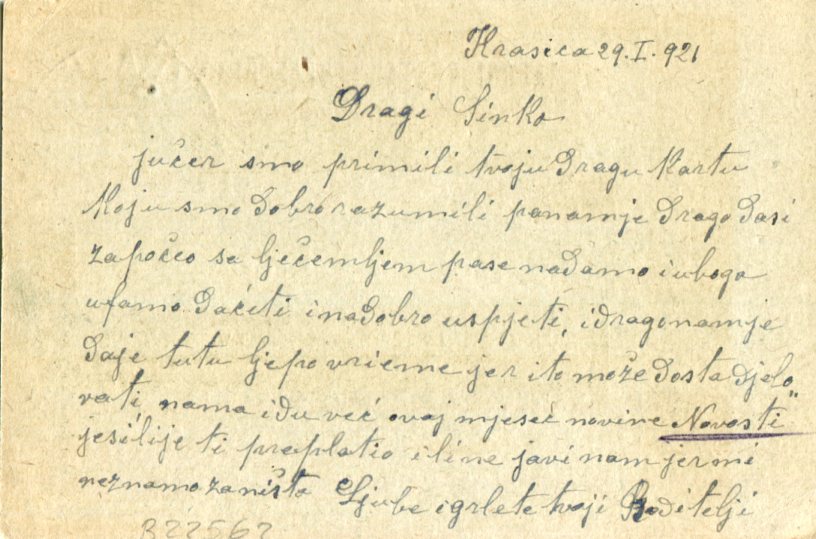 Hrasica 29.I.921
Dragi Sinko
jučer smo primili tvoju dragu kartu
koju smo dobro razumili panamje drago dasi
započeo sa lječemljem pase nadamo iuboga
ufamo daćeti inadobro uspjeti, idragonamje
daje tutu ljepo vrieme jer ito može dosta djelo
vati, nama idu već ovaj mjesec novine Novosti"
jesilije ti preplatio iline javi nam jermi
neznamo zaništa Ljube igrlete tvoji Roditelji
B22562